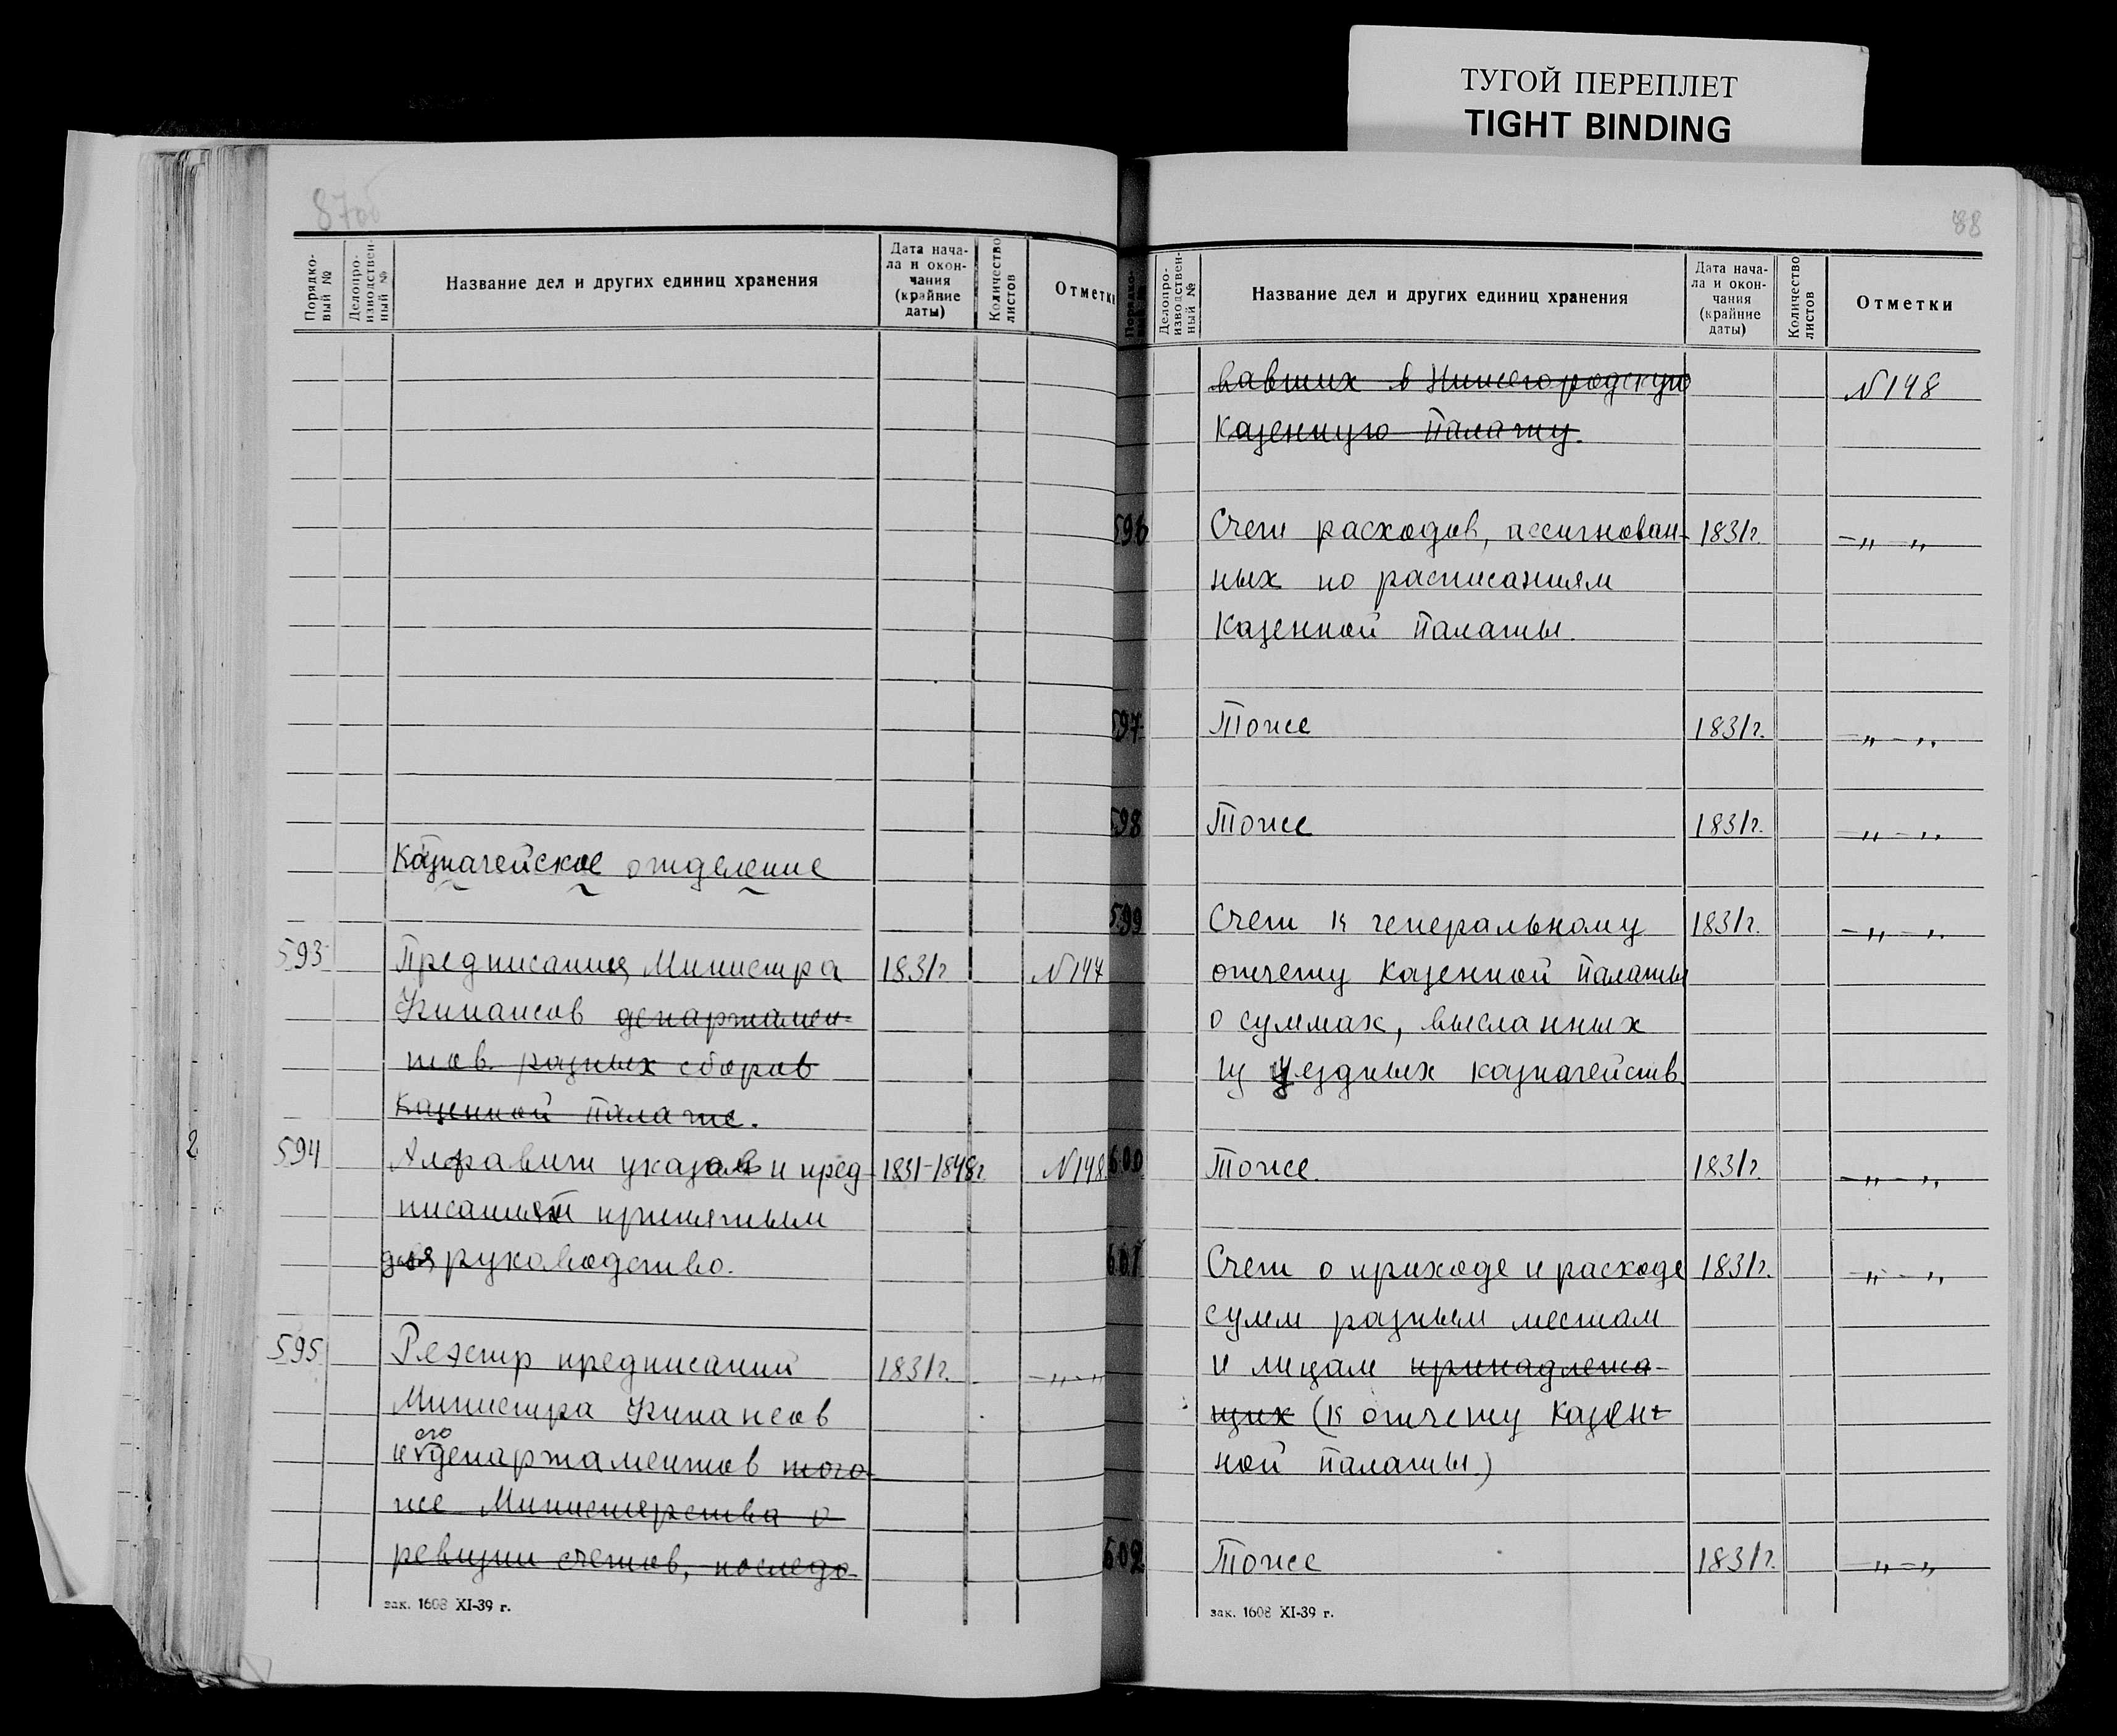 ТУГОЙ ПЕРЕПЛЕТ
TIGHT BINDING
87об
Порядковый №
Делопроизводственный №
Название дел и других единиц хранения
Дата начала и окончания (крайние даты)
Количество листов
Отметки
Казначейское отделение
593 Предписания Министра 1831г N147
Финансов департамен-
тов разных сборов
Казенной палате.
594 Алфавит указов и пред- 1831-1848г. N148
писаний принятым
для руководство.
595 Реэстр предписаний 1831г. -„-„
Министра Финансов
и его департаментов того
же Министерства о
ревизии счетов, последо
зак. 1608 XI-39 г.
2
88
Порядковый №
Делопроизводственный №
Название дел и других единиц хранения
Дата начала и окончания (крайние даты)
Количество листов
Отметки
вавших в Нижегородскую N148
Казенную Палату.
596 Счет расходов, ассигнован- 1831г. -„-„
ных по расписаниям
Казенной Палаты.
597 Тоже 1831г. -„-„
598 Тоже 1831г. -„-„
599 Счет к генеральному 1831г. -„-„
отчету Казенной Палаты
о суммах, высланных
из уездных казначейств.
600 Тоже. 1831г. -„-„
601 Счет о приходе и расходе 1831г. -„-„
сумм разным местам
и лицам принадлежа-
щих (к отчету Казен-
ной Палаты.)
602 Тоже 1831г. -„-„
зак. 1608 XI-39 г.